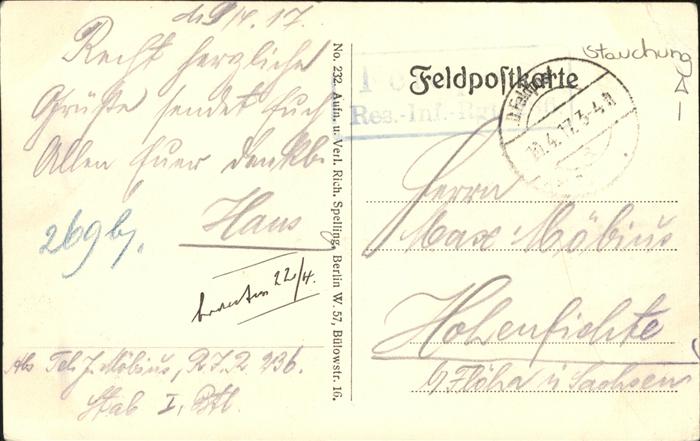 d. 9/4.17.
Recht herzliche
Grüße sendet Euch
Allen Euer dankb.
Hans
269 by.
22/4.
Abs Tel. J. Möbius, R. I. R. 236.
Stab I. Btl.
No. 232. Aufn. u. Verl. Rich. Spelling, Berlin W. 57, Bülowstr. 16.
Feldpostkarte
Res.-Inf.-Rgt.
10.4.17.3-4 N
Stauchung
Herrn
Max Möbius
Hohenfichte
b/ Flöha i/ Sachsen